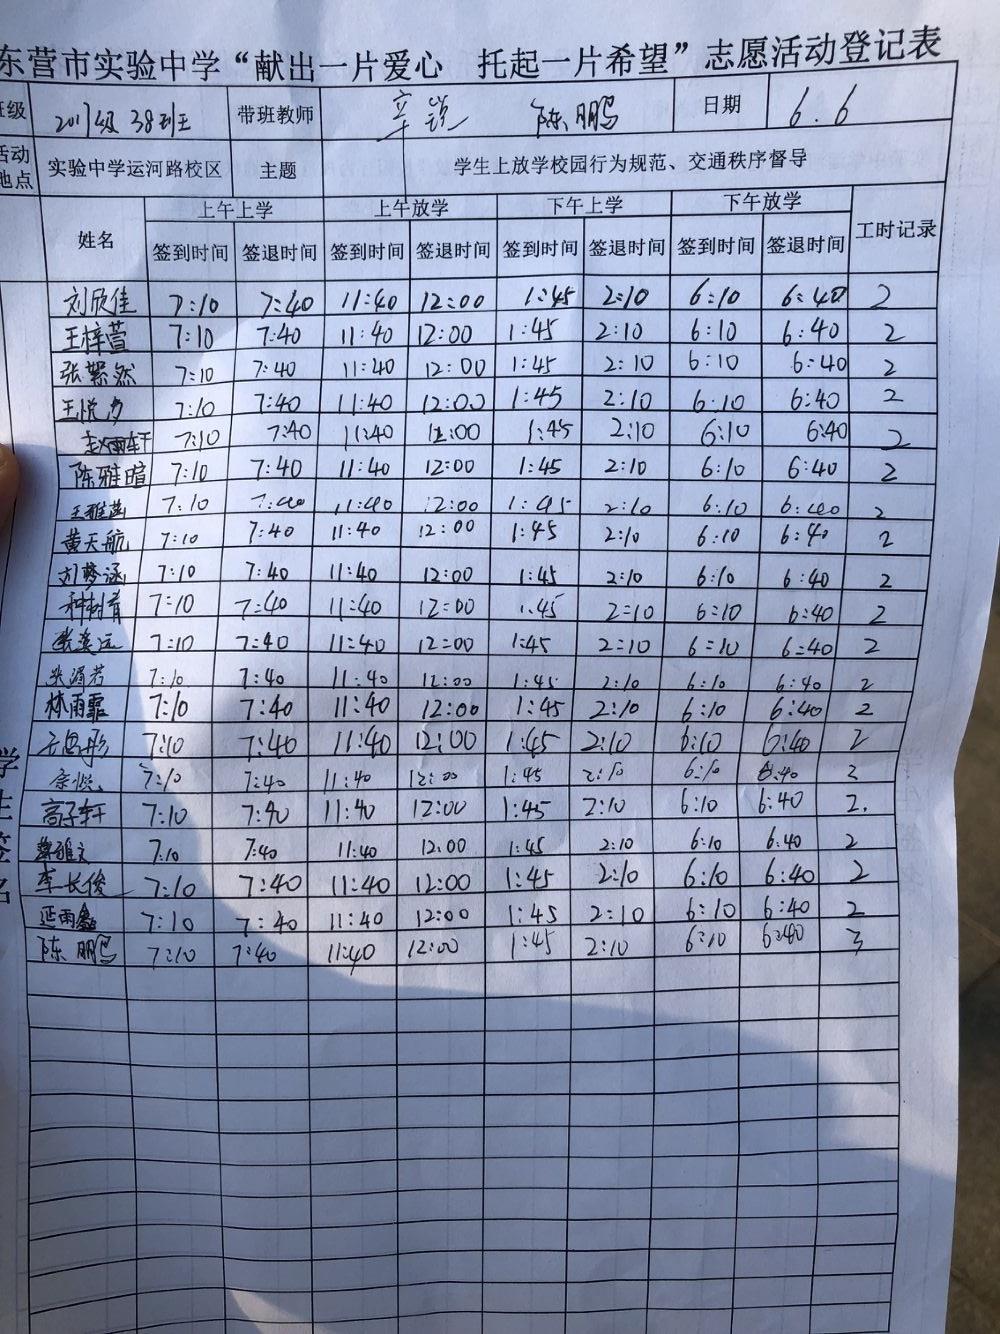 东营市实验中学“献出一片爱心 托起一片希望”志愿活动登记表
班级 2017级38班 带班教师 辛锐 陈鹏 日期 6.6
活动地点 实验中学运河路校区 主题 学生上放学校园行为规范、交通秩序督导
姓名 上午上学 上午放学 下午上学 下午放学 工时记录
签到时间 签退时间 签到时间 签退时间 签到时间 签退时间 签到时间 签退时间
刘欣佳 7:10 7:40 11:40 12:00 1:45 2:10 6:10 6:40 2
王梓萱 7:10 7:40 11:40 12:00 1:45 2:10 6:10 6:40 2
张 然 7:10 7:40 11:40 12:00 1:45 2:10 6:10 6:40 2
王悦夕 7:10 7:40 11:40 12:00 1:45 2:10 6:10 6:40 2
赵雨轩 7:10 7:40 11:40 12:00 1:45 2:10 6:10 6:40 2
陈雅暄 7:10 7:40 11:40 12:00 1:45 2:10 6:10 6:40 2
王雅菡 7:10 7:40 11:40 12:00 1:45 2:10 6:10 6:40 2
黄天航 7:10 7:40 11:40 12:00 1:45 2:10 6:10 6:40 2
刘梦涵 7:10 7:40 11:40 12:00 1:45 2:10 6:10 6:40 2
种树育 7:10 7:40 11:40 12:00 1:45 2:10 6:10 6:40 2
张 远 7:10 7:40 11:40 12:00 1:45 2:10 6:10 6:40 2
7:10 7:40 11:40 12:00 1:45 2:10 6:10 6:40 2
林雨霏 7:10 7:40 11:40 12:00 1:45 2:10 6:10 6:40 2
彤 7:10 7:40 11:40 12:00 1:45 2:10 6:10 6:40 2
7:10 7:40 11:40 12:00 1:45 2:10 6:10 6:40 2
高子轩 7:10 7:40 11:40 12:00 1:45 2:10 6:10 6:40 2.
雅文 7:10 7:40 11:40 12:00 1:45 2:10 6:10 6:40 2
李长俊 7:10 7:40 11:40 12:00 1:45 2:10 6:10 6:40 2
延雨鑫 7:10 7:40 11:40 12:00 1:45 2:10 6:10 6:40 2
陈鹏 7:10 7:40 11:40 12:00 1:45 2:10 6:10 6:40 3
学生签名